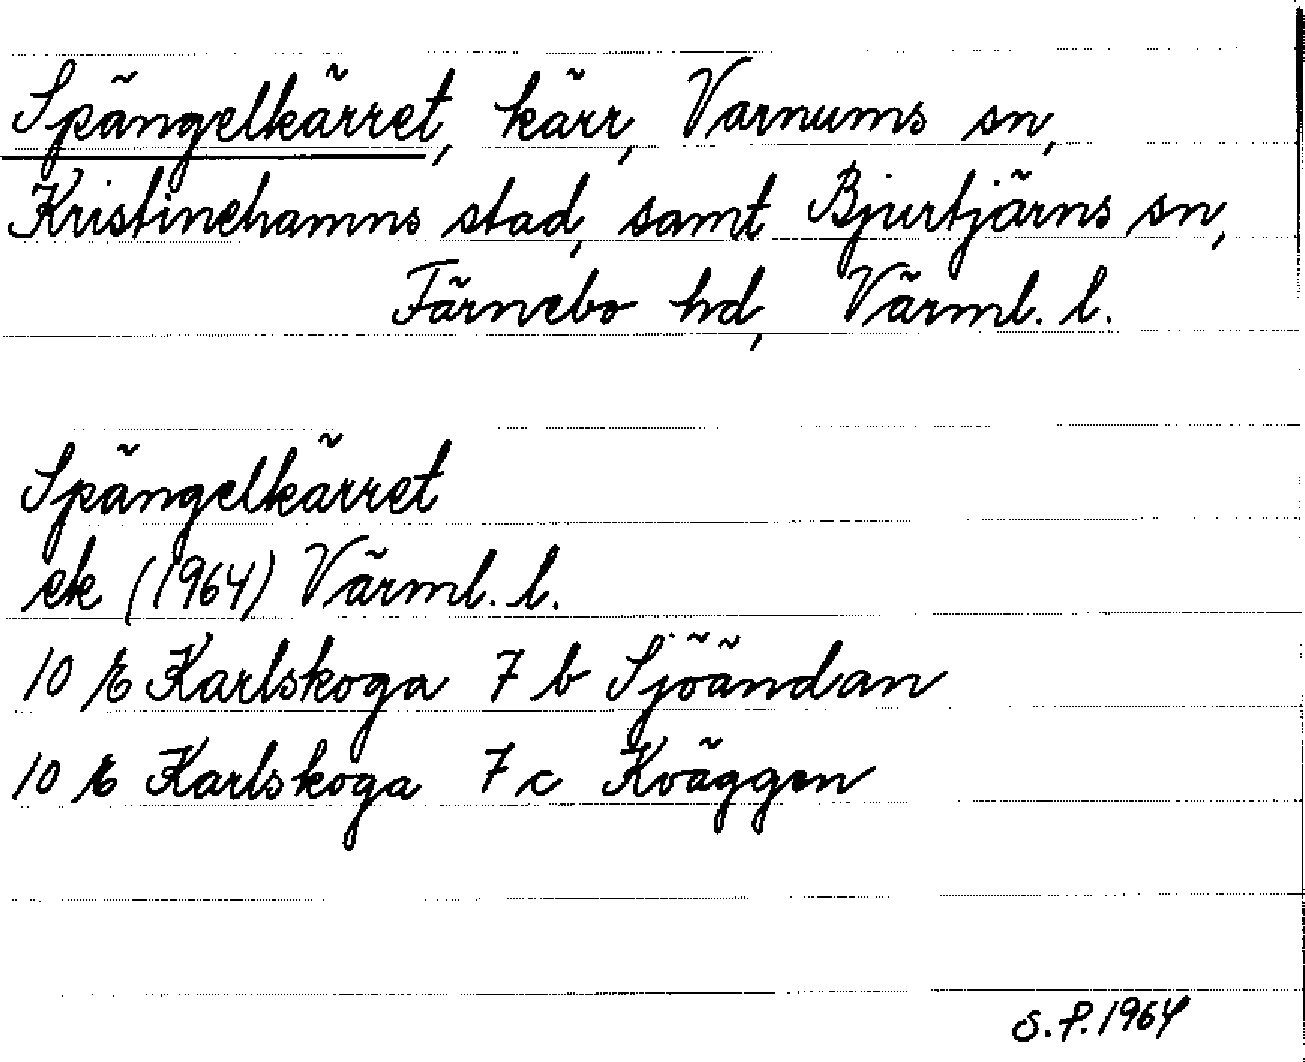 Spängelkärret, kärr, Varnums sn,
Kristinehamns stad, samt Bjurtjärns sn,
Färnebo hd, Värml. l.
Spängelkärret
ek (1964) Värml. l.
10 E Karlskoga 7 b Sjöändan
10 E Karlskoga 7 c Kväggen
S. P. 1964